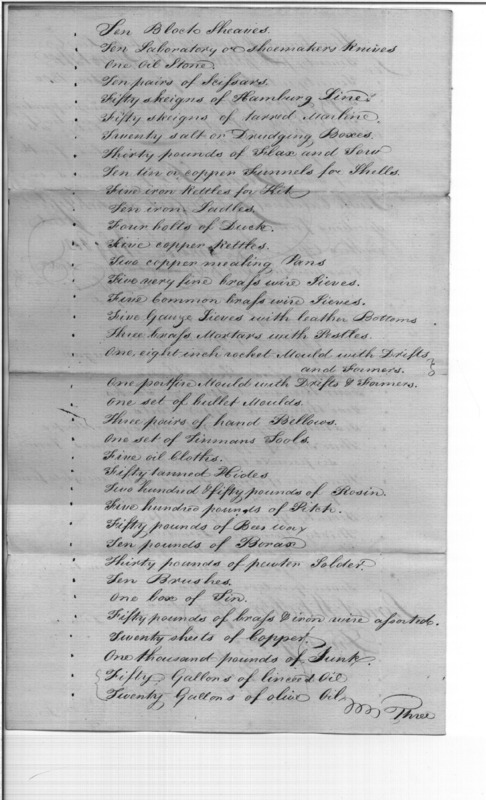 Ten Block Sheaves.
Ten Laboratory or Shoemakers Knives
One Oil Stone.
Ten pairs of Scissars.
Fifty skeigns of Hamburg Line.
Fifty skeigns of tarred Marline.
Twenty salt or Drudging Boxes.
Thirty pounds of Flax and Tow
Ten tin or copper Funnels for Shells.
Five iron Kettles for Kit
Ten iron Ladles.
Four bolts of Duck.
Five copper Kettles.
Two copper mealing Pans
Five very fine brass wire Sieves.
Five Common brass wire Sieves.
Five Gauze Sieves with leather Bottoms
Three brass Mortars with Pestles.
One eight inch rocket Mould with Drifts
and Formers.
One portfire Mould with Drifts & Formers.
One set of bullet Moulds.
Three pairs of hand Bellows.
One set of Tinmans Tools.
Five oil Clothes.
Fifty tanned Hides
Two hundred & fifty pounds of Rosin.
Five hundred pounds of Pitch.
Fifty pounds of Bees Wax
Ten pounds of Borax
Thirty pounds of pewter Solder.
Ten Brushes.
One box of Tin.
Fifty pounds of brass & iron wire assorted.
Twenty sheets of Copper.
One thousand pounds of Junk.
Fifty Gallons of linseed Oil
Twenty Gallons of olive Oil
Three